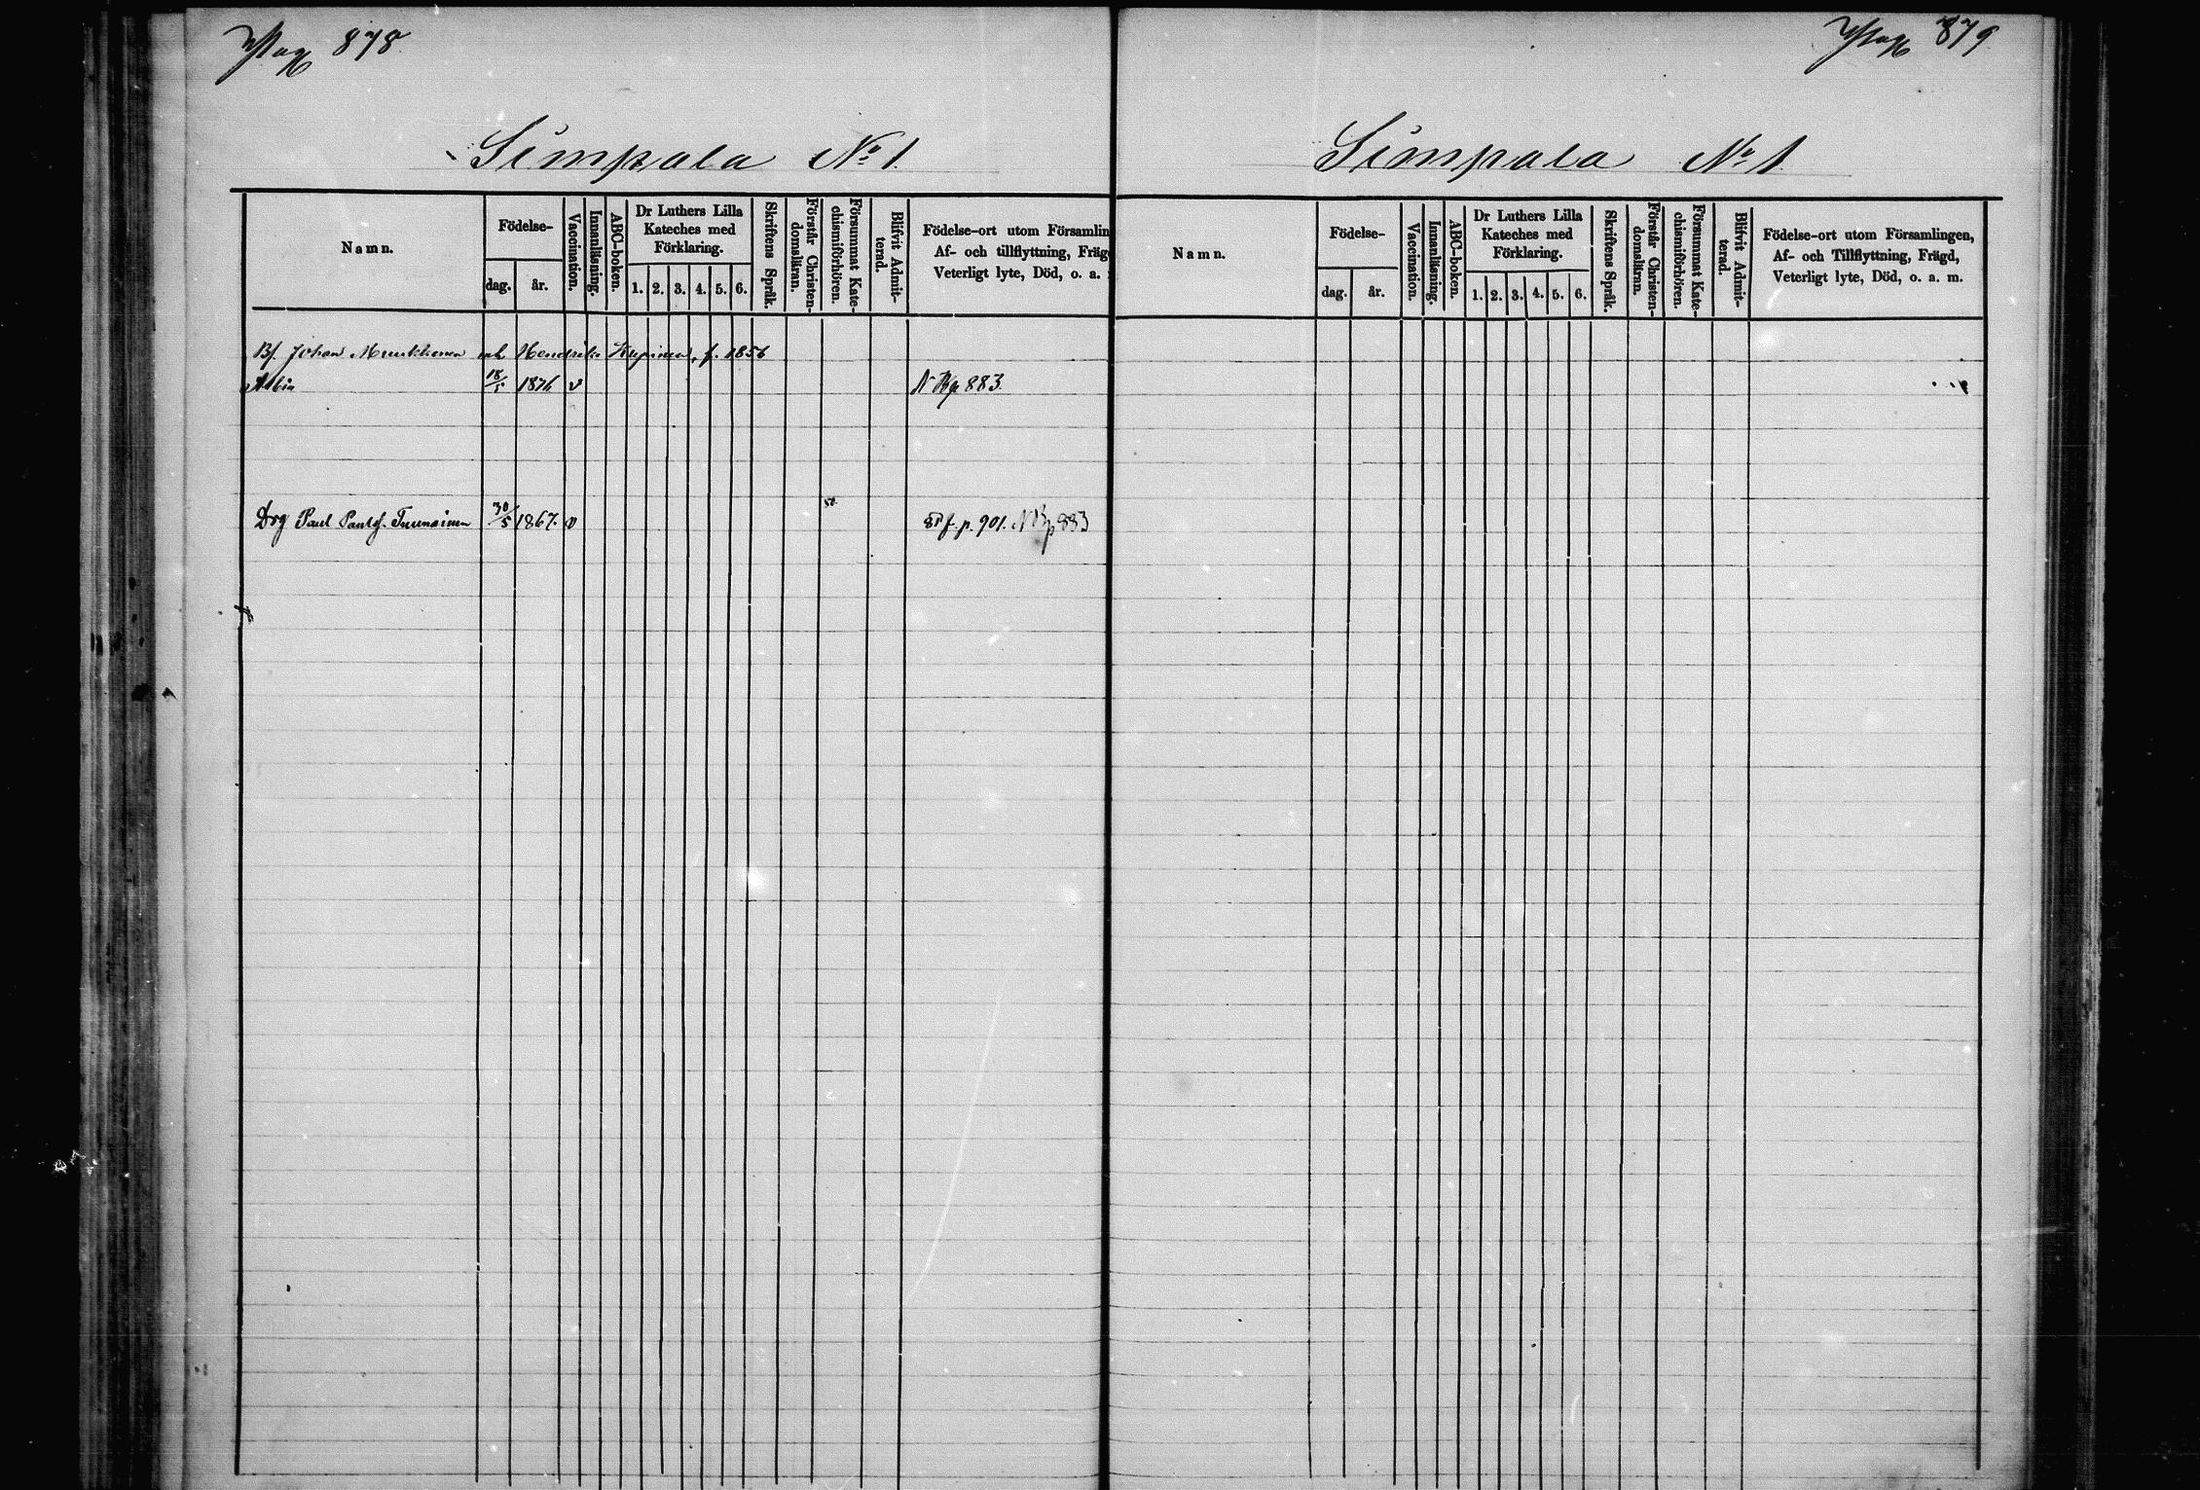 Pag 878
Simpala No 1.
Namn.
Födelse-
dag.
år.
Vaccination.
Innanläsning.
ABC-boken.
Dr Luthers Lilla
Kateches med
Förklaring.
1. 2. 3. 4. 5. 6.
Skriftens Språk.
Förstår Christen-
domsläran.
Försummat Kate-
chismiförhören.
Blifvit Admit-
terad.
Födelse-ort utom Församlin
Af- och tillflyttning, Fräg
Veterligt lyte, Död, o. a.
Bf. Johan Muukkonen Hendrika f. 1856
Albin 18/5 1876 v N Bp 883.
Drg Paul Paulsf. 30/5 1867. v f. p. 901. N Bp 883
Pag 879
Simpala No 1
Namn.
Födelse-
dag.
år.
Vaccination.
Innanläsning.
ABC-boken.
Dr Luthers Lilla
Kateches med
Förklaring.
1. 2. 3. 4. 5. 6.
Skriftens Språk.
Förstår Christen-
domsläran.
Försummat Kate-
chismiförhören.
Blifvit Admit-
terad.
Födelse-ort utom Församlingen,
Af- och Tillflyttning, Frägd,
Veterligt lyte, Död, o. a. m.